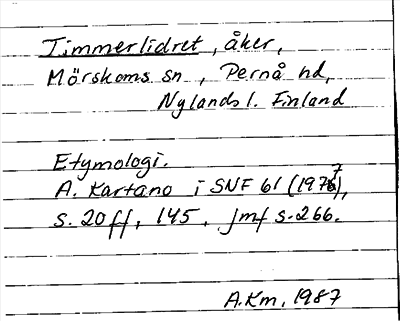 Timmerlidret, åker,
Mörskoms sn, Pernå hd,
Nylands l. Finland
Etymologi.
A. Kartano i SNF 61 (1977),
s. 20ff, 145. Jmf s. 266.
A.Km, 1987